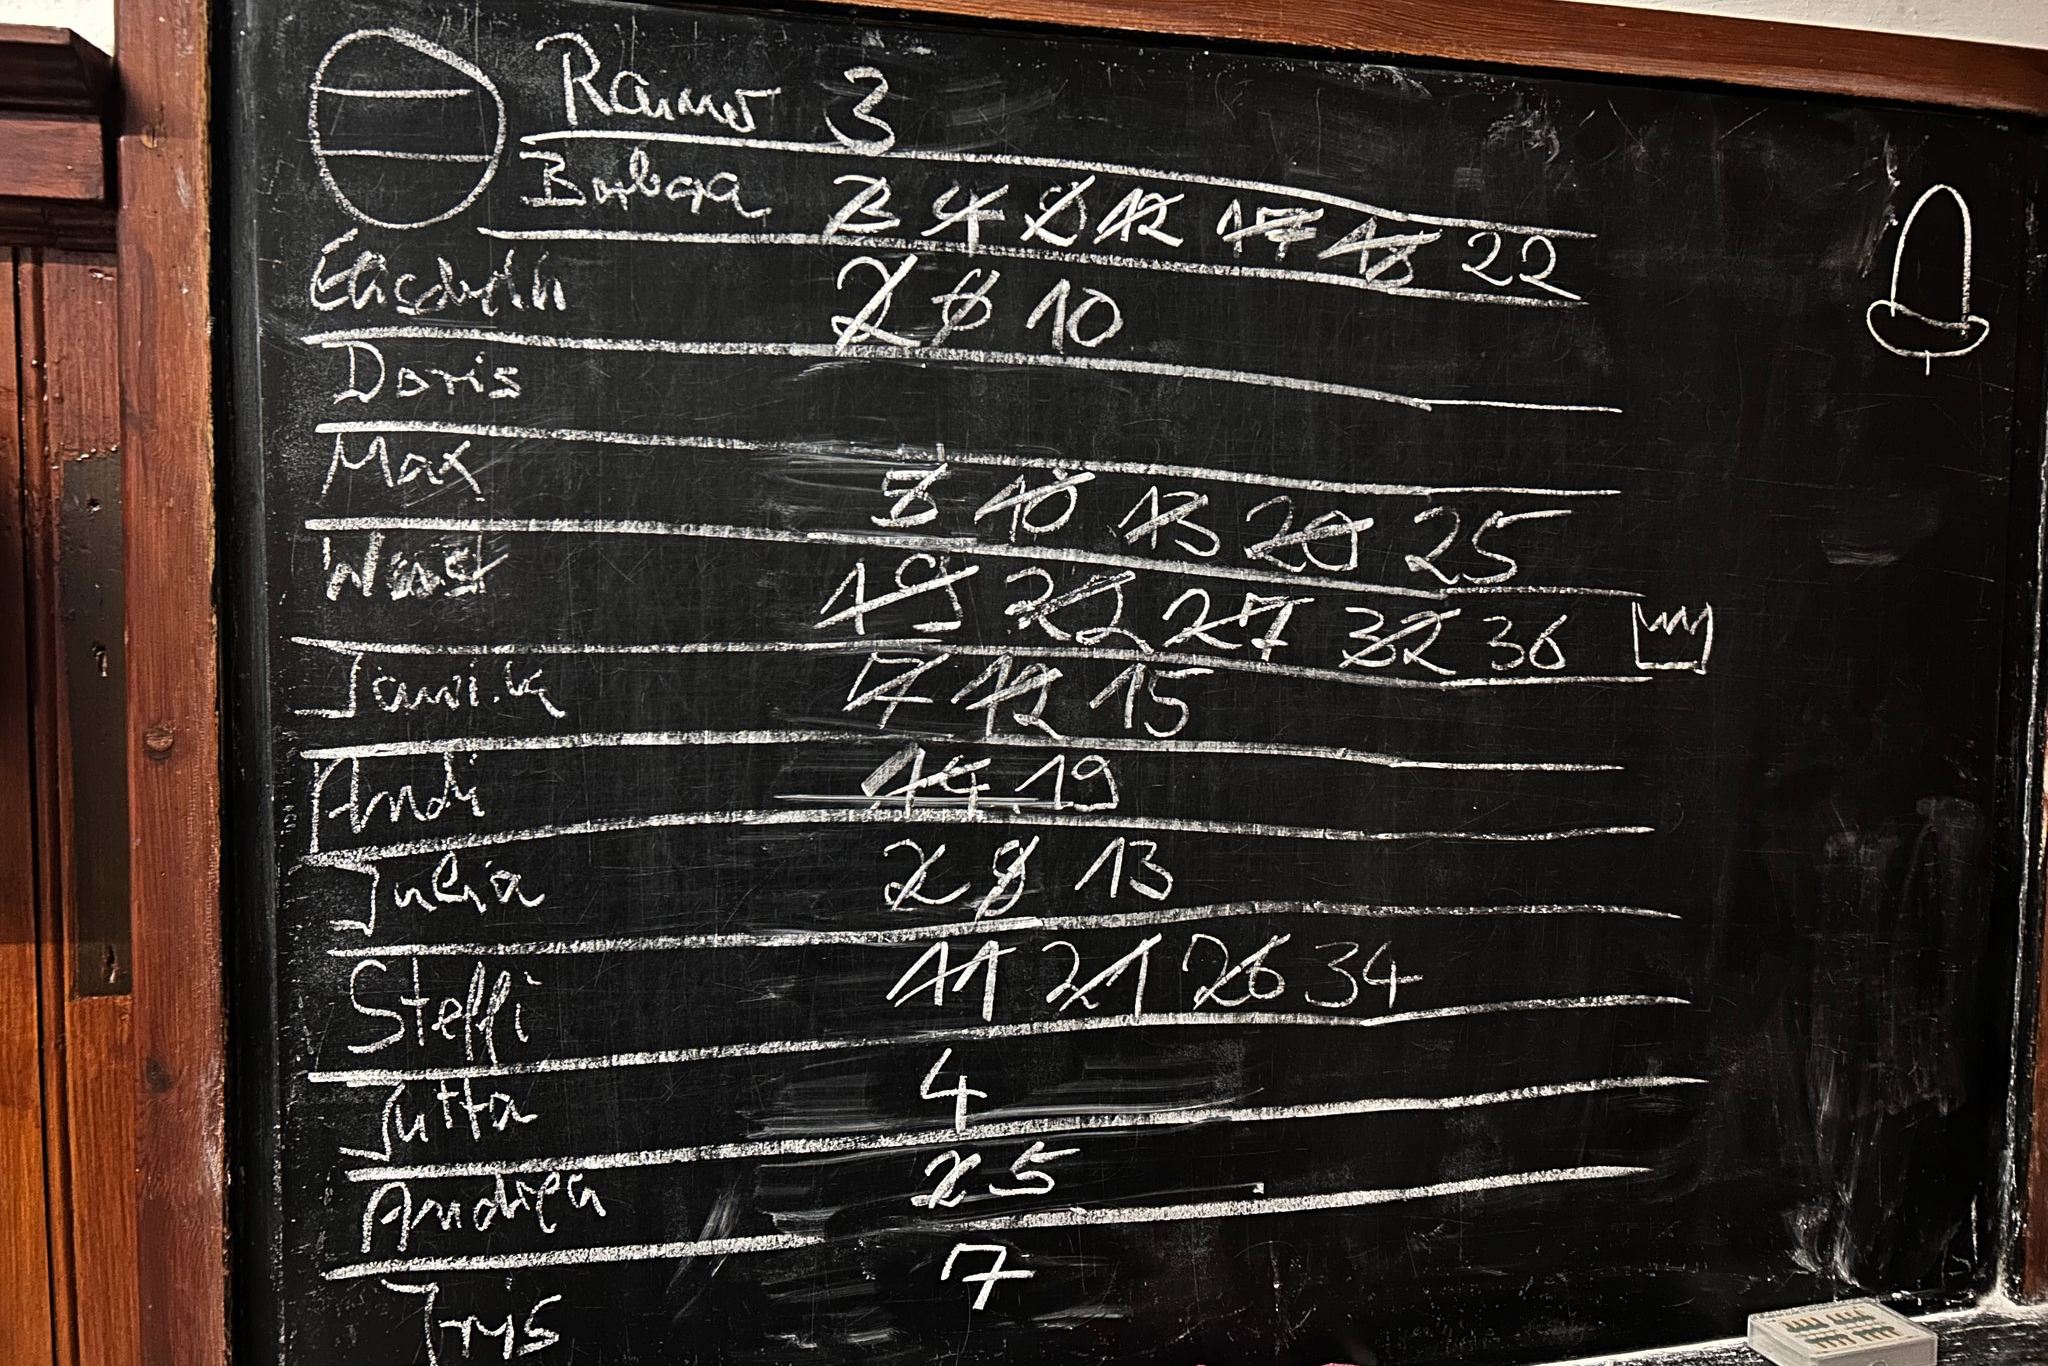 Raimo 3
Barbara 3 4 8 12 17 18 22
Elisabeth 2 6 10
Doris
Max 3 10 13 20 25
19 22 27 32 36
7 12 15
Andi 14 19
Julia 2 8 13
Steffi 11 21 26 34
Jutta 4
Andrea 2 5
Iris 7